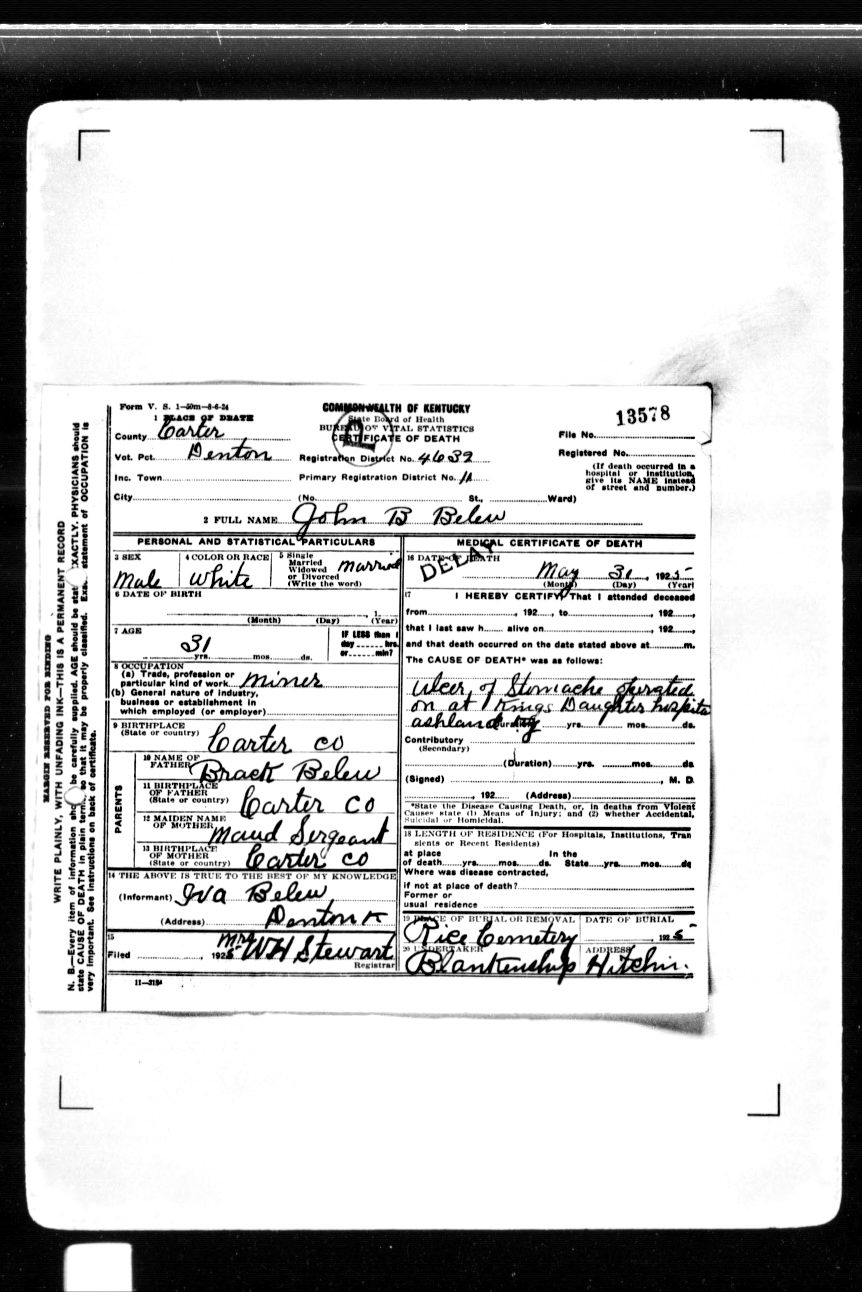 MARGIN RESERVED FOR BINDING
WRITE PLAINLY, WITH UNFADING INK—THIS IS A PERMANENT RECORD
N. B.—Every item of information should be carefully supplied. AGE should be stated EXACTLY. PHYSICIANS should
state CAUSE OF DEATH in plain terms, so that it may be properly classified. Exact statement of OCCUPATION is
very important. See instructions on back of certificate.
Form V. S. 1—50m—6-6-24
COMMONWEALTH OF KENTUCKY
State Board of Health
BUREAU OF VITAL STATISTICS
CERTIFICATE OF DEATH
13578
1 PLACE OF DEATH
County Carter
Vot. Pct. Denton
Inc. Town
City
Registration District No. 4639
Primary Registration District No. 1A
(No. St., Ward)
File No.
Registered No.
(If death occurred in a
hospital or institution,
give its NAME instead
of street and number.)
2 FULL NAME John B Belew
PERSONAL AND STATISTICAL PARTICULARS
3 SEX
Male
4 COLOR OR RACE
White
5 Single
Married
Widowed
or Divorced
(Write the word)
Married
6 DATE OF BIRTH
, 1
(Month) (Day) (Year)
7 AGE
31
yrs. mos. ds.
IF LESS than 1
day hrs.
or min?
8 OCCUPATION
(a) Trade, profession or
particular kind of work Miner
(b) General nature of industry,
business or establishment in
which employed (or employer)
9 BIRTHPLACE
(State or country) Carter co
PARENTS
10 NAME OF
FATHER Brack Belew
11 BIRTHPLACE
OF FATHER
(State or country) Carter co
12 MAIDEN NAME
OF MOTHER Maud Sergeant
13 BIRTHPLACE
OF MOTHER
(State or country) Carter co
14 THE ABOVE IS TRUE TO THE BEST OF MY KNOWLEDGE
(Informant) Iva Belew
(Address) Denton K
15
Filed , 1925 Mrs WH Stewart
Registrar
11—3184
MEDICAL CERTIFICATE OF DEATH
DELAY
16 DATE OF DEATH
May 31, 1925
(Month) (Day) (Year)
17 I HEREBY CERTIFY, That I attended deceased
from , 192 , to , 192 ,
that I last saw h alive on , 192 ,
and that death occurred on the date stated above at m.
The CAUSE OF DEATH* was as follows:
Ulcer of Stomache opurated
on at Kings Daughter hospita
ashland Ky
(Duration) yrs. mos. ds.
Contributory
(Secondary)
(Duration) yrs. mos. ds
(Signed) , M. D.
, 192 (Address)
*State the Disease Causing Death, or, in deaths from Violent
Causes state (1) Means of Injury; and (2) whether Accidental,
Suicidal or Homicidal.
18 LENGTH OF RESIDENCE (For Hospitals, Institutions, Tran
sients or Recent Residents)
at place In the
of death yrs. mos. ds. State yrs. mos. ds
Where was disease contracted,
if not at place of death?
Former or
usual residence
19 PLACE OF BURIAL OR REMOVAL DATE OF BURIAL
Rice Cemetery , 1925
20 UNDERTAKER ADDRESS
Blankenship Hitchin.